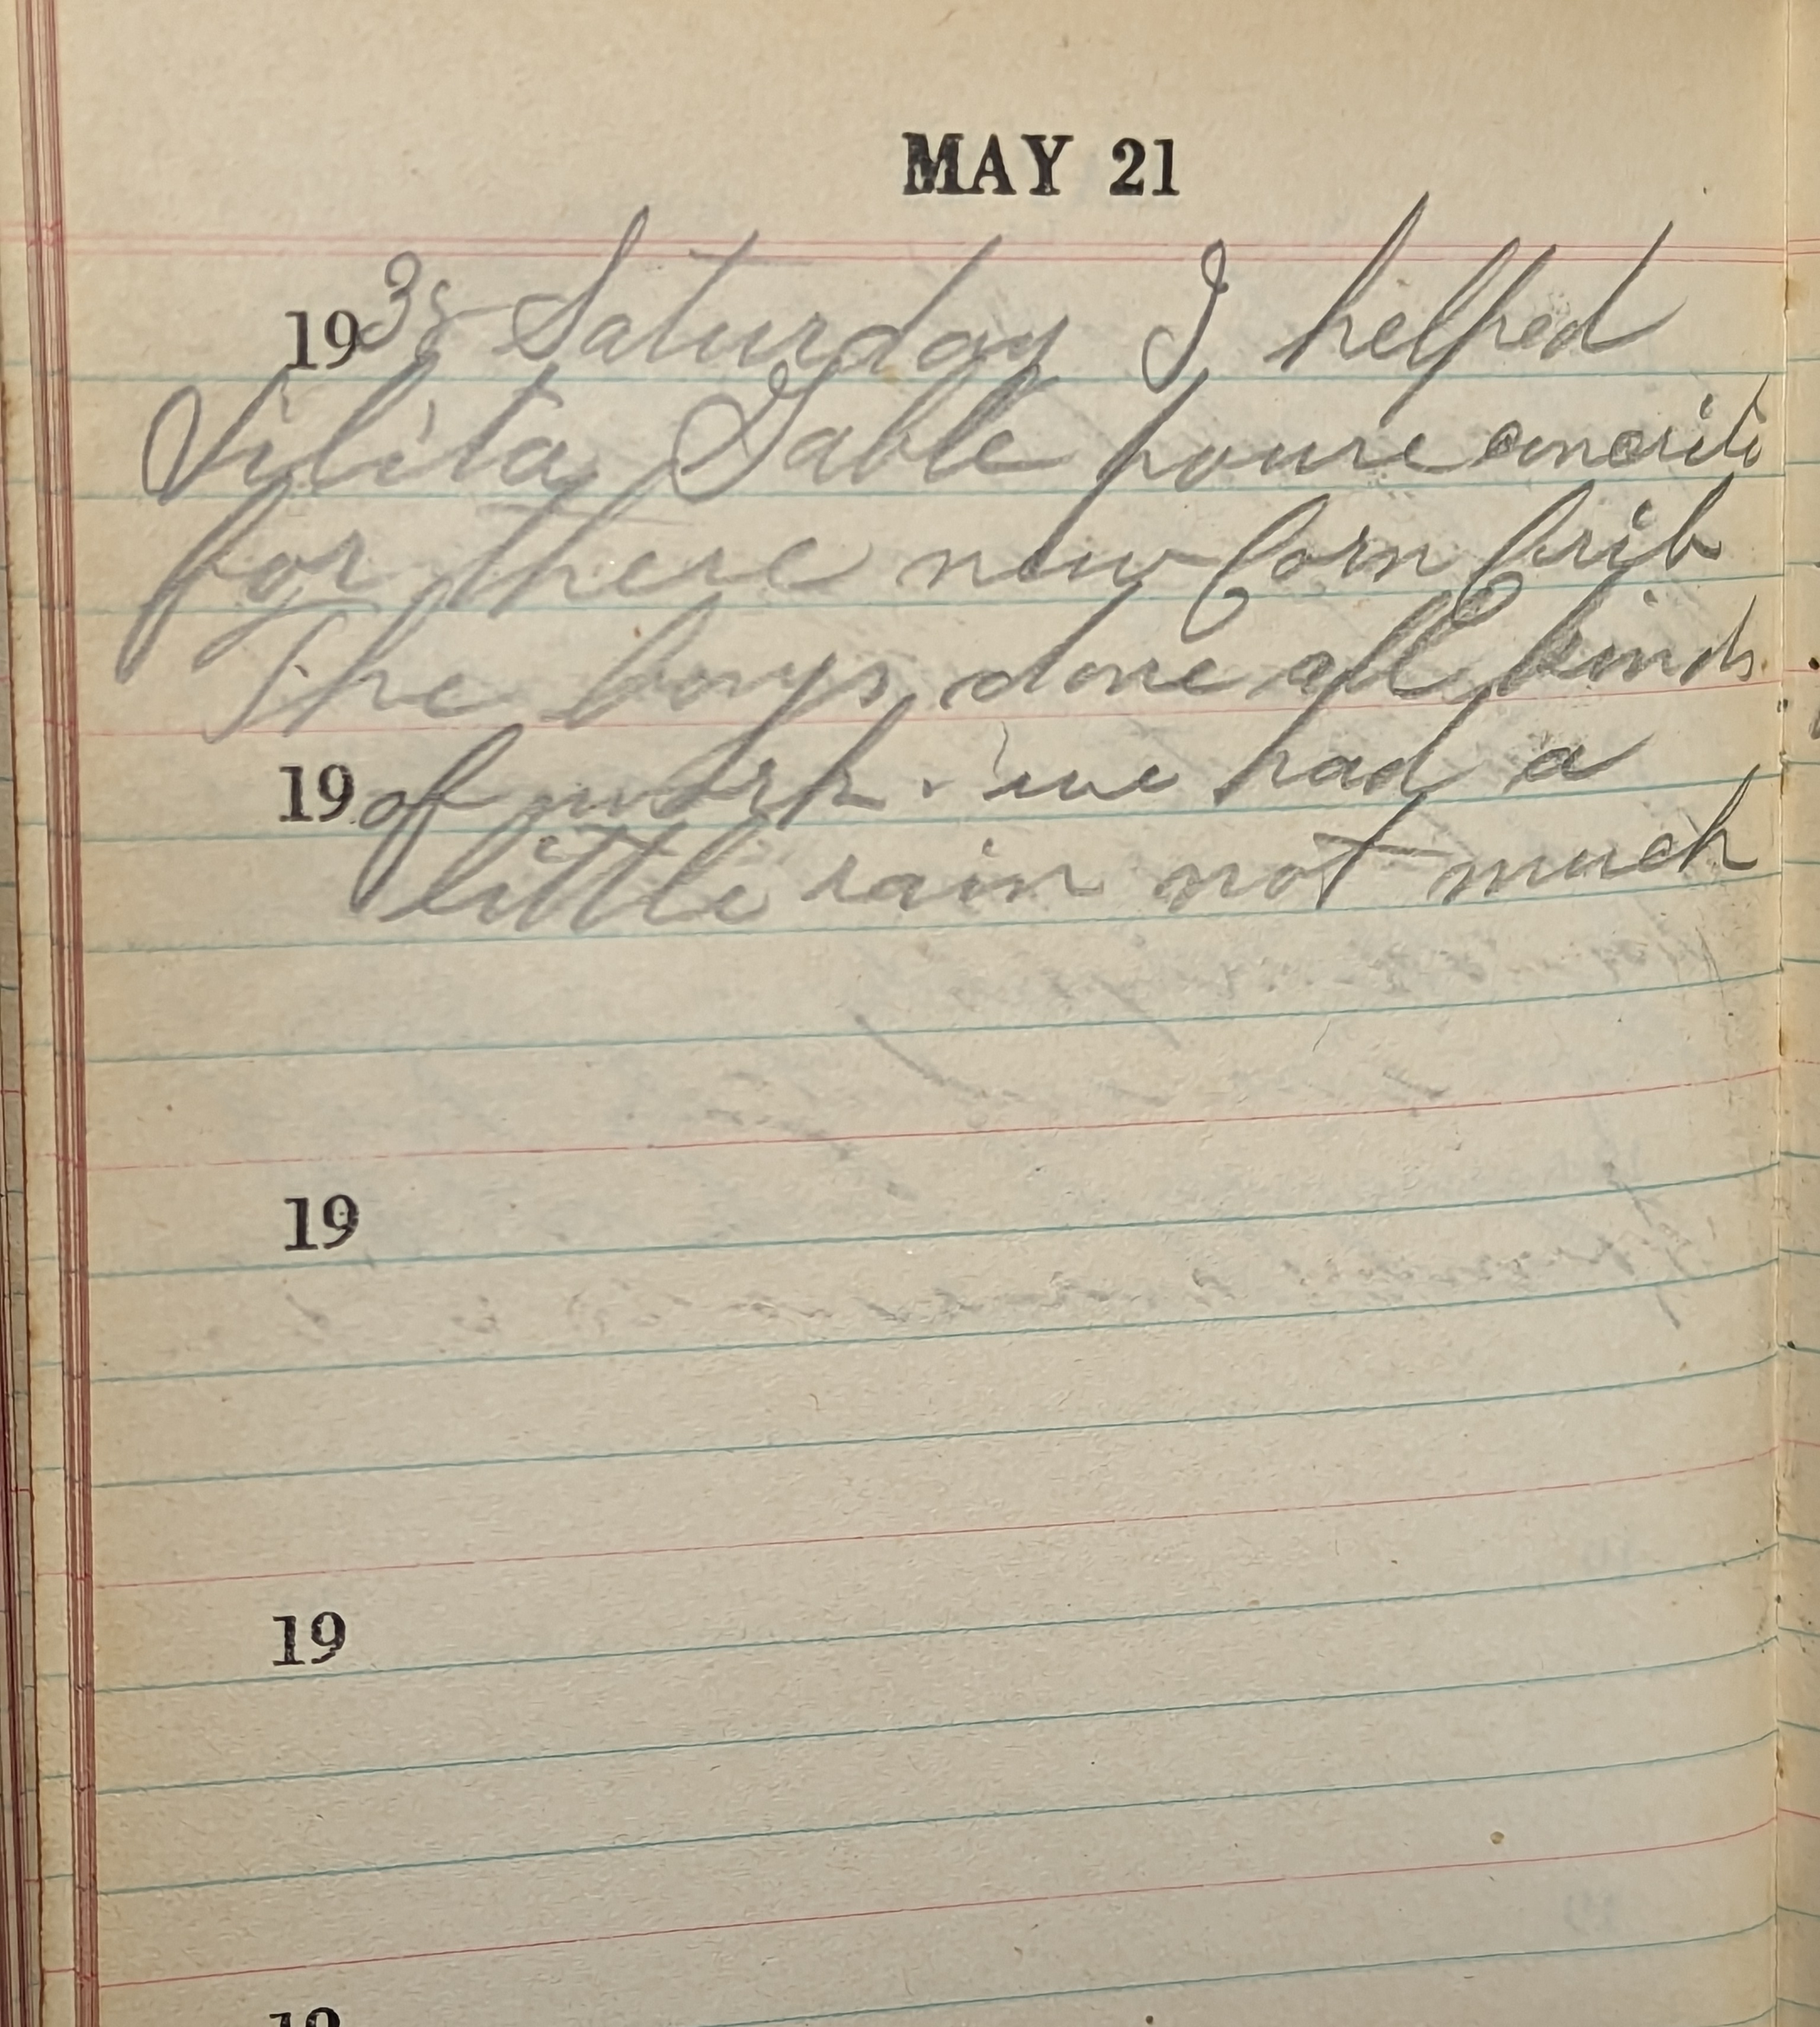 MAY 21
1938 Saturday I helped
Gable poure
for there new Corn Crib
The boys done all kinds
19 of work. we had a
little rain not much
19
19
19